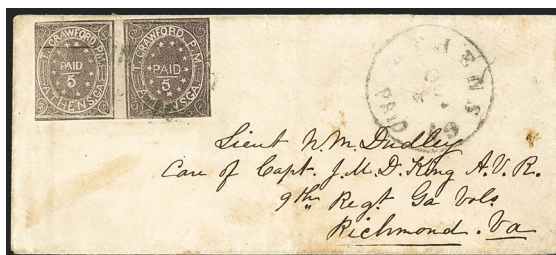 T. CRAWFORD, P.M.
PAID
5
ATHENS, GA
T. CRAWFORD, P.M.
PAID
5
ATHENS, GA
ATHENS
PAID
Lieut W. M. Dudley
Care of Capt. J. M. D. King A.V.R.
9th Regt Ga Vols
Richmond. Va